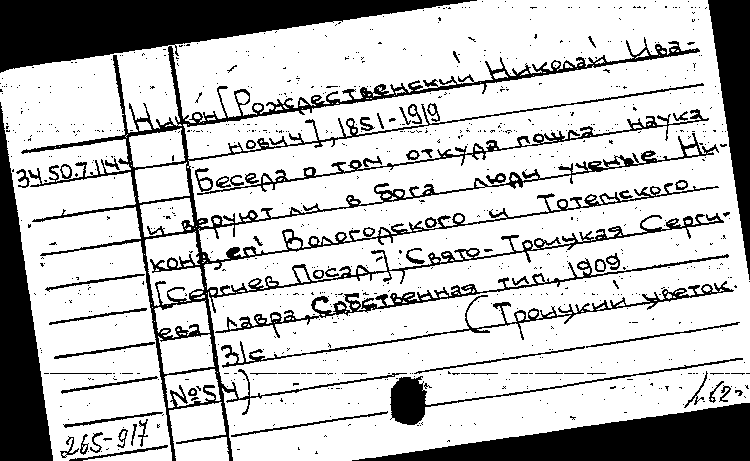 Никон [Рождественский, Николай Ива-
нович], 1851-1919
34.50.7.1144
Беседа о том, откуда пошла наука
и веруют ли в бога люди ученые. Ни-
кона, еп. Вологодского и Тотемского.
[Сергиев Посад], Свято-Троицкая Серги-
ева лавра, Собственная тип., 1909.
31с. (Троицкий цветок.
№54).
265-917